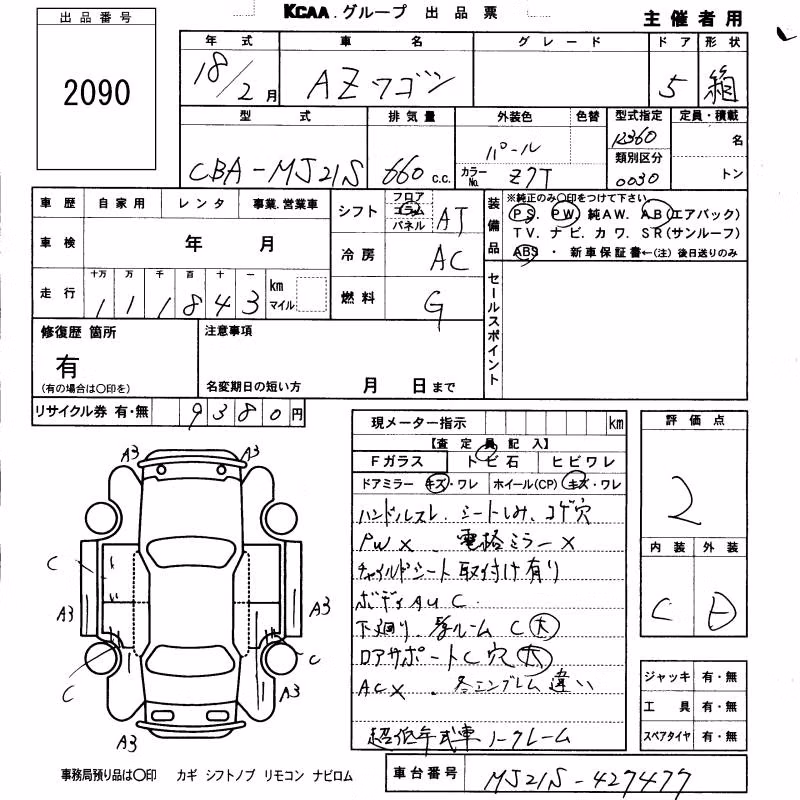 KCAA.グループ 出品票
主催者用
出品番号
2090
年式 車名 グレード ドア 形状
18/2月 AZワゴン 5 箱
型式 排気量 外装色 色替 型式指定 定員・積載
CBA-MJ21S 660 c.c. パール 12360 名
カラーNo. Z7T 類別区分 0030 トン
車歴 自家用 レンタ 事業.営業車
車検 年 月
走行 十万 万 千 百 十 一 km マイル
1 1 1 8 4 3
シフト フロア コラム パネル AT
冷房 AC
燃料 G
装備品
※純正のみ〇印をつけて下さい。
PS. PW. 純AW. AB(エアバック)
TV. ナビ. カワ. SR(サンルーフ)
ABS ・ 新車保証書←(注) 後日送りのみ
セールスポイント
修復歴 箇所
有
(有の場合は〇印を)
注意事項
名変期日の短い方 月 日まで
リサイクル券 有・無 9380円
現メーター指示 km
【査定員記入】
Fガラス トビ石 ヒビワレ
ドアミラー キズ・ワレ ホイール(CP) キズ・ワレ
ハンドルスレ. シートしみ、コゲ穴
PW× . 電格ミラー×
チャイルドシート取付け有り
ボディAUC.
下廻り. ルームC大
ロアサポートC穴大
AC× . 各エンブレム違い
超低年式車ノークレーム
評価点
2
内装 外装
C D
ジャッキ 有・無
工具 有・無
スペアタイヤ 有・無
A3 A3
C
A3 A3
C C
A3
A3
事務局預り品は〇印 カギ シフトノブ リモコン ナビロム
車台番号 MJ21S-427477